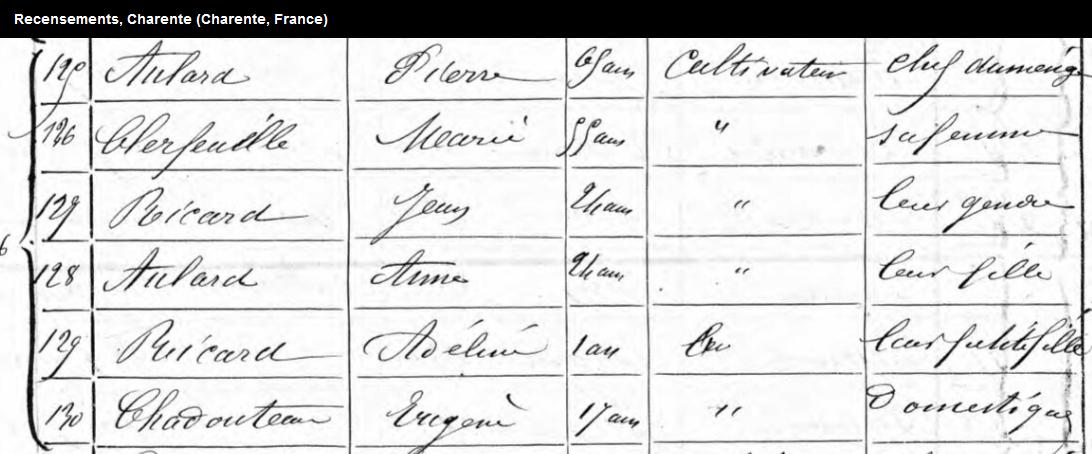 Recensements, Charente (Charente, France)
Aulard Pierre 65 ans Cultivateur chef du ménage
126 Clerfeuille Marie 55 ans " sa femme
127 Ricard Jean ans " leur gendre
128 Aulard Anne ans " leur fille
129 Ricard Adéline 1 an leur petite fille
130 Chadouteau Eugène 17 ans " Domestique